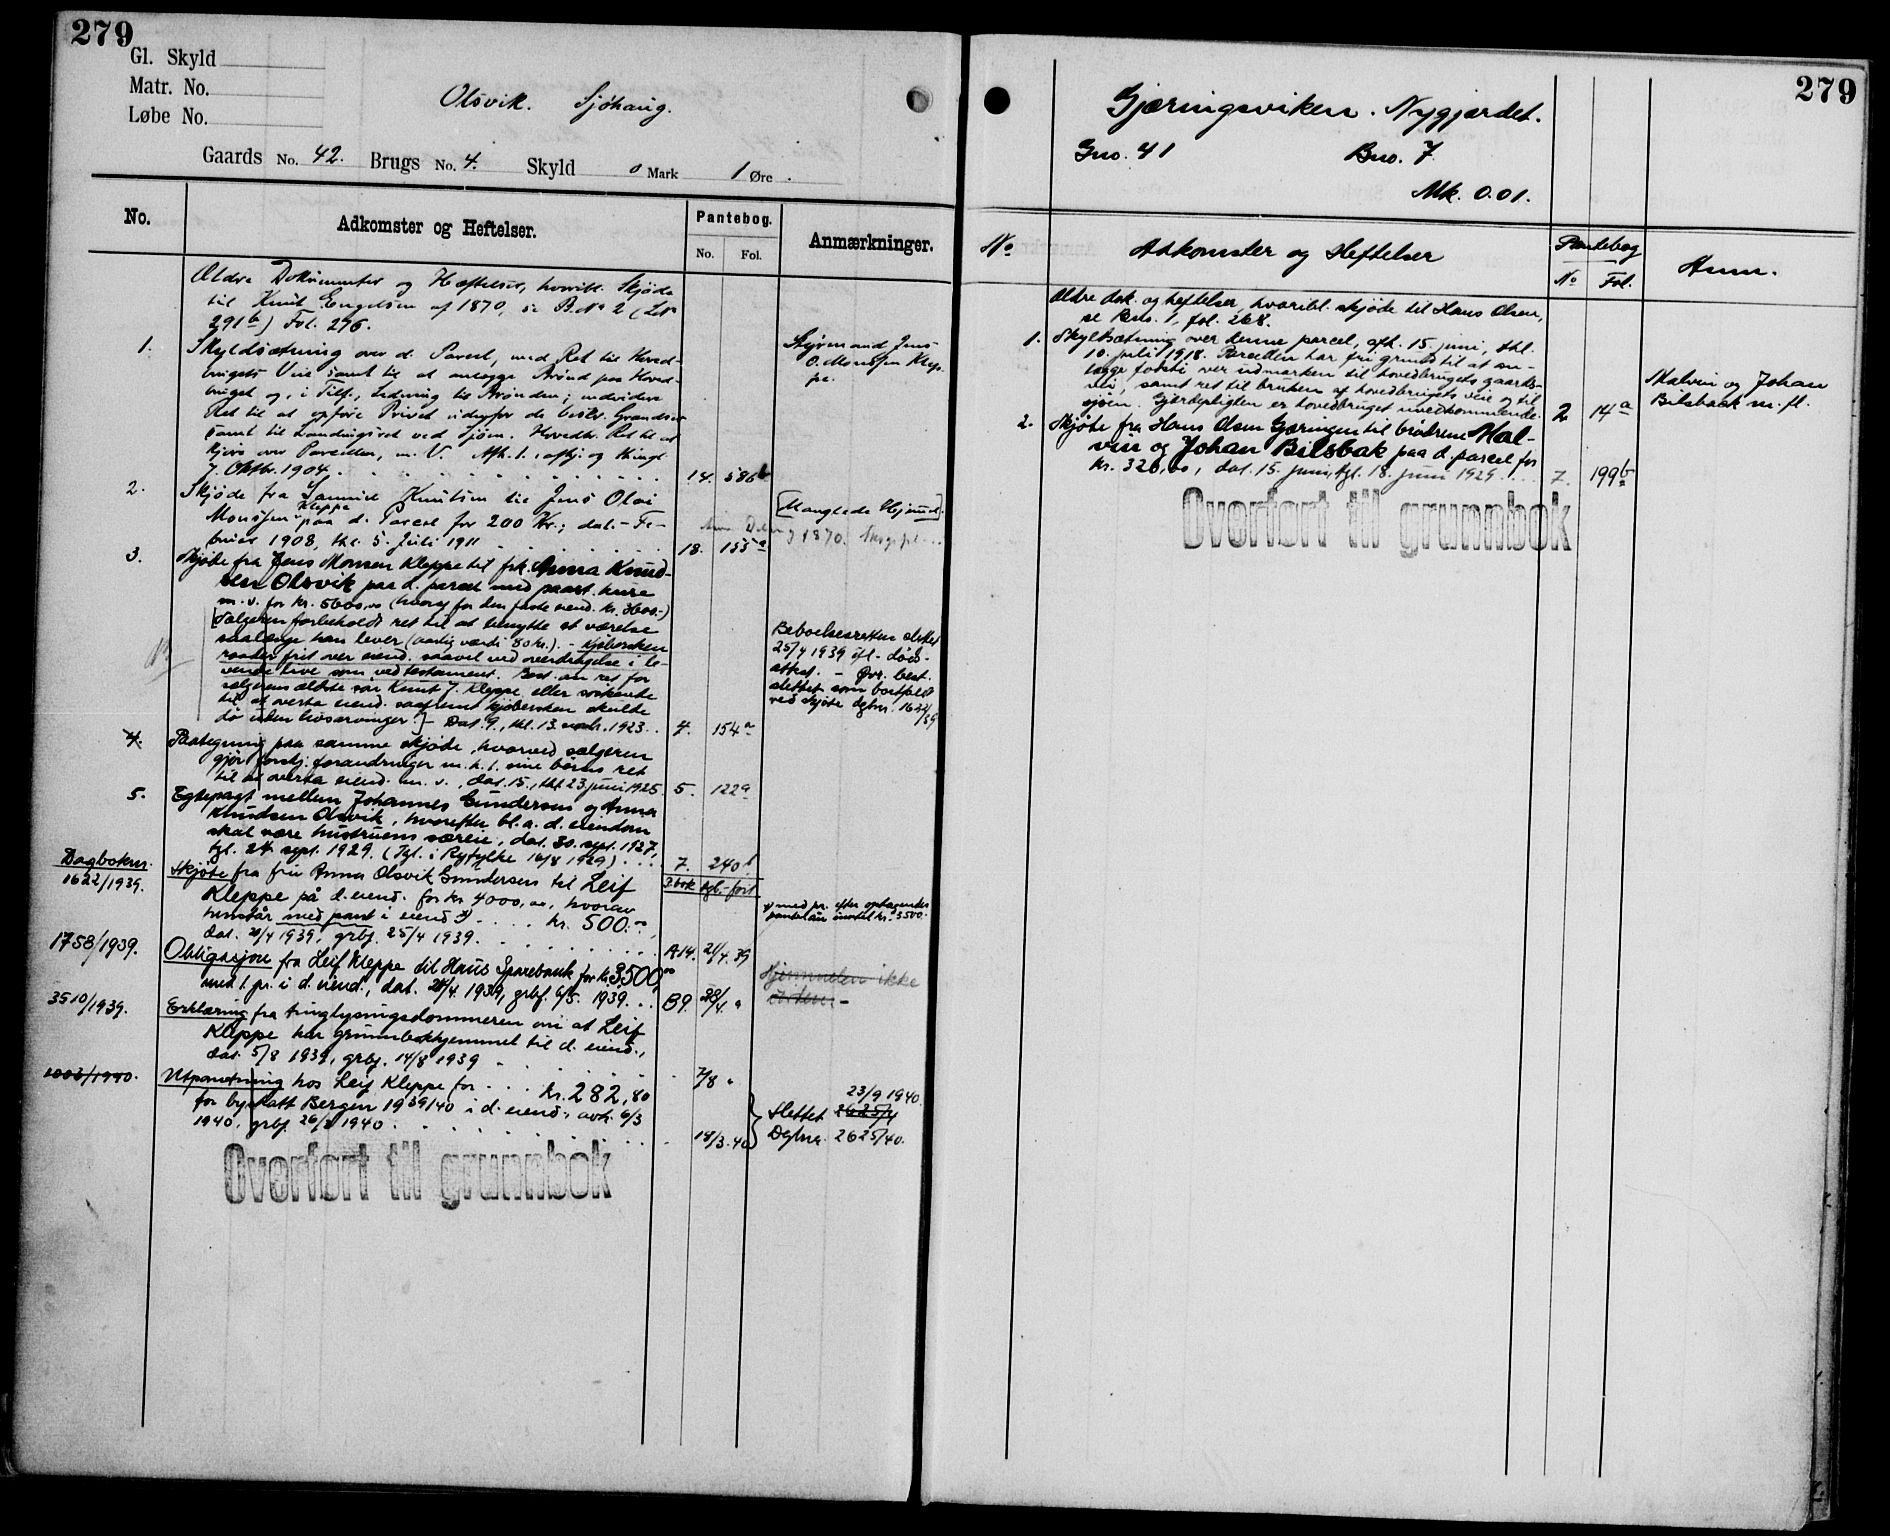 279
Gl. Skyld
Matr. No.
Løbe No.
Olsvik. Sjøhaug.
Gaards No. 42. Brugs No. 4. Skyld 0 Mark 1 Øre.
No.
Adkomster og Heftelser.
Pantebog.
No. Fol.
Anmærkninger.
Ældre Dokumenter og Hæftelser, hvoribl. Skjøde
til Knut Engelsen af 1870, se B.No 2 (LN
291b) Fol. 276.
1. Skyldsætning over d. Parcel, med Ret til Hoved-
brugets Veie samt til at anlægge Brønd paa Hoved-
bruget og, i Tilf., Ledning til Brønden; endvidere
Ret til at opføre Privet udenfor de beskr. Grændser
samt til Landingsret ved Sjøen. Hovedbr. Ret til at
kjøre over Parcellen, m. V. Afh. 1. aftj. og thingl.
7. Oktbr. 1904. 14. 586b
Styrmand Jens
O. Monsen Klep-
pe.
2. Skjøde fra Samuel Knutsen til Jens Olai
Monssen Kleppe paa d. Parcel for 200 Kr.; dat. - Fe-
bruar 1908, thl. 5. Juli 1911 18. 155a
[Manglede Hjemmel]
3. Skjøde fra Jens Monsen Kleppe til frk. Anna Knud-
sen Olsvik paa d. parcel med paast. huse
m. v. for kr. 5600,00 (hvoraf for den faste eiend. kr. 3600.-)
[Sælgeren forbeholdt ret til at benytte et værelse
saalænge han lever (aarlig værdi 80 kr.). - Kjøbersken
raader frit over eiend. saavel ved overdragelse i le-
vende live som ved testament. Best. om ret for
sælgerens ældste søn Knut J. Kleppe eller søskende
til at overta eiend. saafremt kjøbersken skulde
dø uten livsarvinger.] - Dat. 9., thl. 13. novbr. 1923. 4. 154a
Beboelsesretten slettet
25/4 1939 ifl. døds-
attest. - Øvr. best.
slettet som bortfaldt
ved skjøte dgbnr. 1622/39
4. Paategning paa samme skjøde, hvorved sælgeren
gjør forskj. forandringer m. h. t. sine børns ret
til at overta eiend. m. v., dat. 15., thl. 23. juni 1925. 5. 122a
5. Egtepagt mellem Johannes Gundersen og Anna
Knudsen Olsvik, hvorefter bl. a. d. eiendom
skal være hustruens særeie, dat. 30. sept. 1927,
tgl. 24. sept. 1929. (Tgl. i Ryfylke 16/8 1929) 7. 240b
Dagboknr.
1622/1939. Skjøte fra fru Anna Olsvik Gundersen til Leif
P.bok tgl.-ført
Kleppe på d. eiend. for kr. 4000,00, hvorav
henstår med pant i eiend. x) . . . kr. 500.00,
dat. 20/4 1939, grbf. 25/4 1939. A14. 21/4.39
x) med pr. efter optagendes
pantelån inntil kr. 3500.-
1758/1939. Obligasjon fra Leif Kleppe til Haus Sparebank for kr. 3500,00
med 1. pr. i d. eiend., dat. 28/4. 1939, grbf. 6/5. 1939. B9. 28/4. "
Hjemmelen ikke
i orden. -
3510/1939. Erklæring fra tinglysningsdommeren om at Leif
Kleppe har grunnbokhjemmel til d. eiend.,
dat. 5/8 1939, grbf. 14/8 1939 7/8 "
1003/1940. Utpantning hos Leif Kleppe for . . . kr. 282,80
for byskatt Bergen 1939/40 i d. eiend., avh. 6/3
1940, grbf. 20/3 1940. 18/3.40
23/9 1940.
Slettet 2625/4
Dgbnr. 2625/40.
Overført til grunnbok
279
Gjæringsviken. Nygjærdet.
Gno. 41 Bno. 7
Mk. 0.01.
No Adkomster og Heftelser
Pantebog
No Fol.
Anm.
Ældre dok. og heftelser, hvoribl. skjøde til Hans Olsen,
se Bno. 1, fol. 268.
1. Skyldsætning over denne parcel, afh. 15. juni, thl.
10. juli 1918. Parcellen har fri grund til at an-
lægge fotsti over udmarken til hovedbrugets gaards-
vei, samt ret til bruken af hovedbrugets veie og til
sjøen. Gjærdepligten er hovedbruget uvedkommende. 2 14a
Malvin og Johan
Bilsback m. fl.
2. Skjøte fra Hans Olsen Gjæringen til brødrene Mal-
vin og Johan Bilsbak paa d. parcel for
kr. 320,00, dat. 15. juni, tgl. 18. juni 1929. 7. 199b
Overført til grunnbok